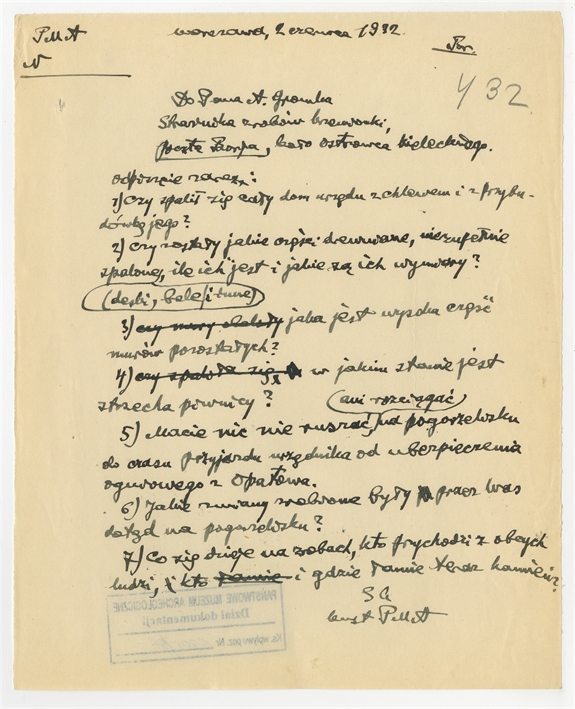 PMA
N
Warszawa, 2 czerwca 1932.
Br.
432
Do Pana A. Gromka
Strażnika wrębów krzemionki,
poczta Borja, koło Ostrowca Kieleckiego.
odpiszcie zaraz:
1) Czy spalił się cały dom urzędu z chlewem i z przybu-
dówką jego?
2) czy zostały jakie części drewniane, niezupełnie
spalone, ile ich jest i jakie są ich wymiary?
(deski, bele i inne)
3) czy mury jaka jest wysoka część
murów pozostałych?
4) czy spaliła się w jakim stanie jest
strzecha piwnicy?
(ani rozciągać)
5) Macie nic nie ruszać, na pogorzelisku
do czasu przyjazdu urzędnika od ubezpieczenia
ogniowego z Opatowa.
6) Jakie zmiany zrobione były przez Was
dotąd na pogorzelisku?
7) Co się dzieje na zrębach, kto przychodzi z obcych
ludzi, i kto łamie i gdzie łamie teraz kamień?
PAŃSTWOWE MUZEUM ARCHEOLOGICZNE
Dział dokumentacji
Ks. wpływu poz. Nr